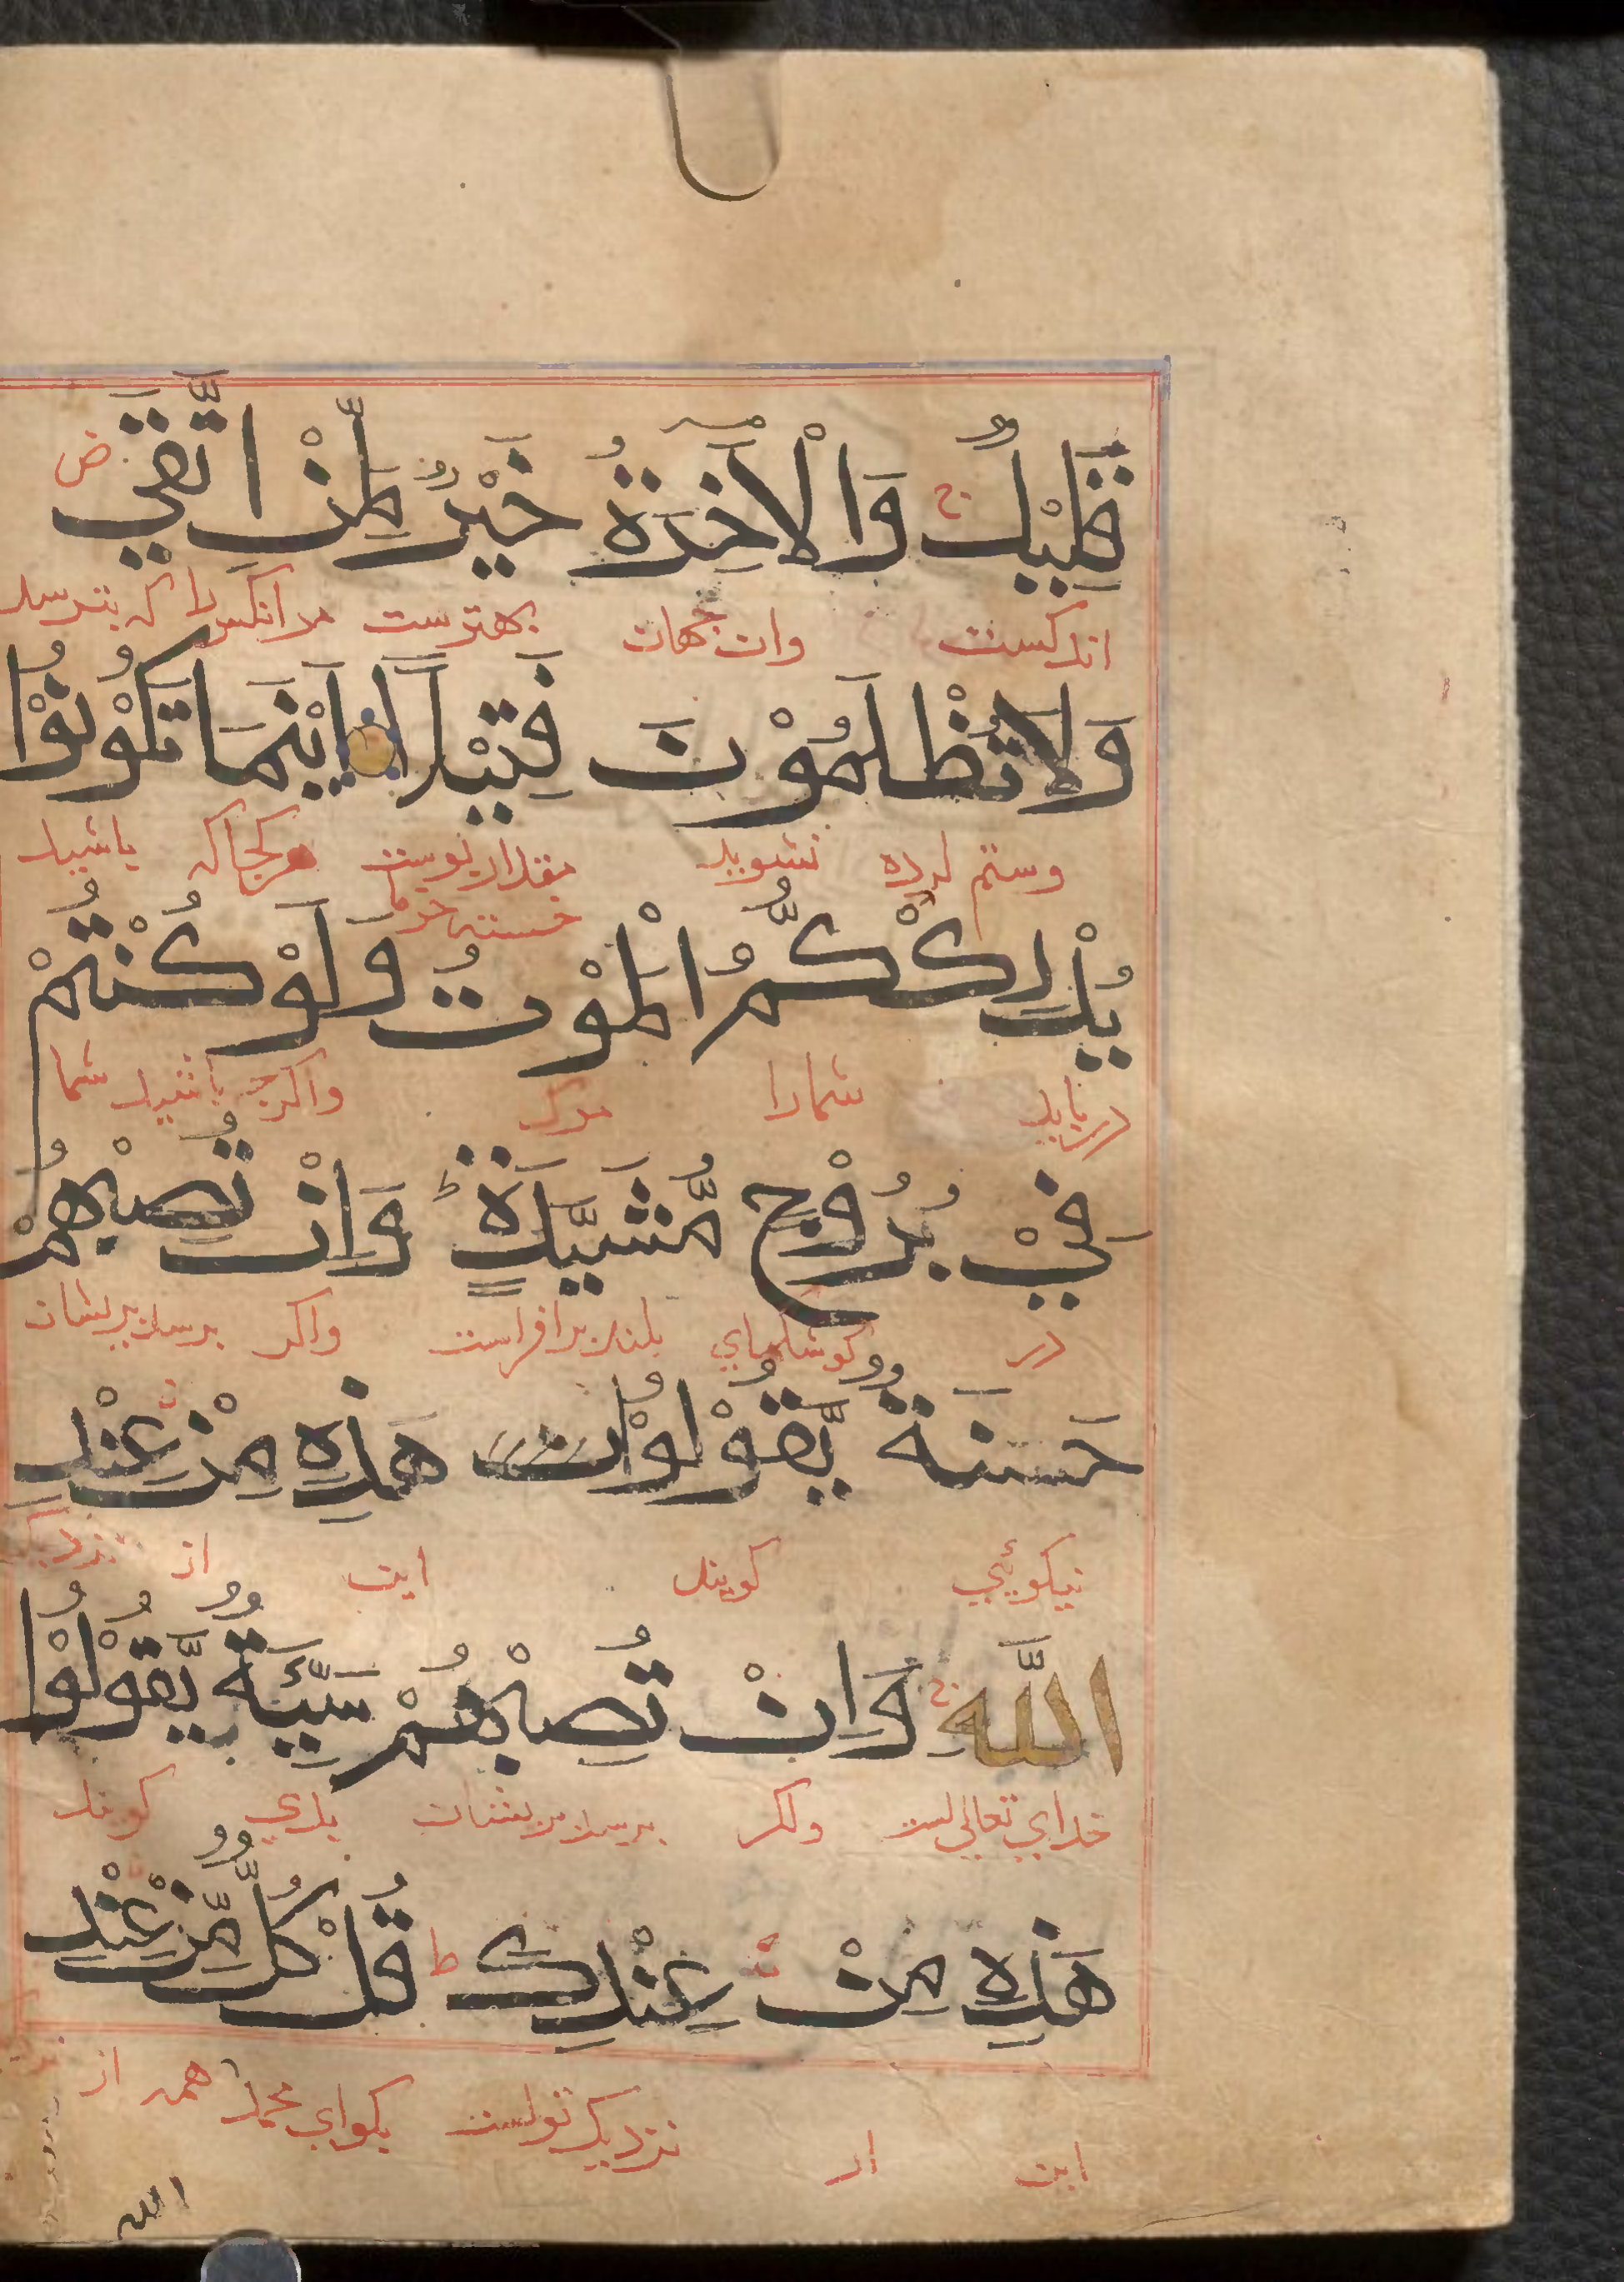 قَلِيْلٌ ج وَالْاٰخِرَةُ خَيْرٌ لِّمَنْ اتَّقٰي
اندکست وان جهان بهترست مر انکس را که بترسد
وَلَا تُظْلَمُوْنَ فَتِيْلًا اَيْنَمَا تَكُوْنُوْا
وستم کرده نشوید مقدار پوست هر کجا که باشید
خسته خرما
يُدْرِكْكُّمُ الْمَوْتُ وَلَوْ كُنْتُمْ
دریابد شمارا مرک واکرچه باشید شما
فِيْ بُرُوْجٍ مُّشَيَّدَةٍ ط وَاِنْ تُصِبْهُمْ
در کوشکهای بلند برافراست واکر برسد بریشان
حَسَنَةٌ يَّقُوْلُوْا هٰذِهٖ مِنْ عِنْدِ
نیکوئی کویند این از نزدیک
اللّٰهِ ج وَاِنْ تُصِبْهُمْ سَيِّئَةٌ يَّقُوْلُوْا
خدای تعالی است واکر برسد بریشان بدی کویند
هٰذِهٖ مِنْ عِنْدِكَ ط قُلْ كُلٌّ مِّنْ عِنْدِ
این از نزدیک تواست بکو ای محمد همه از
الله